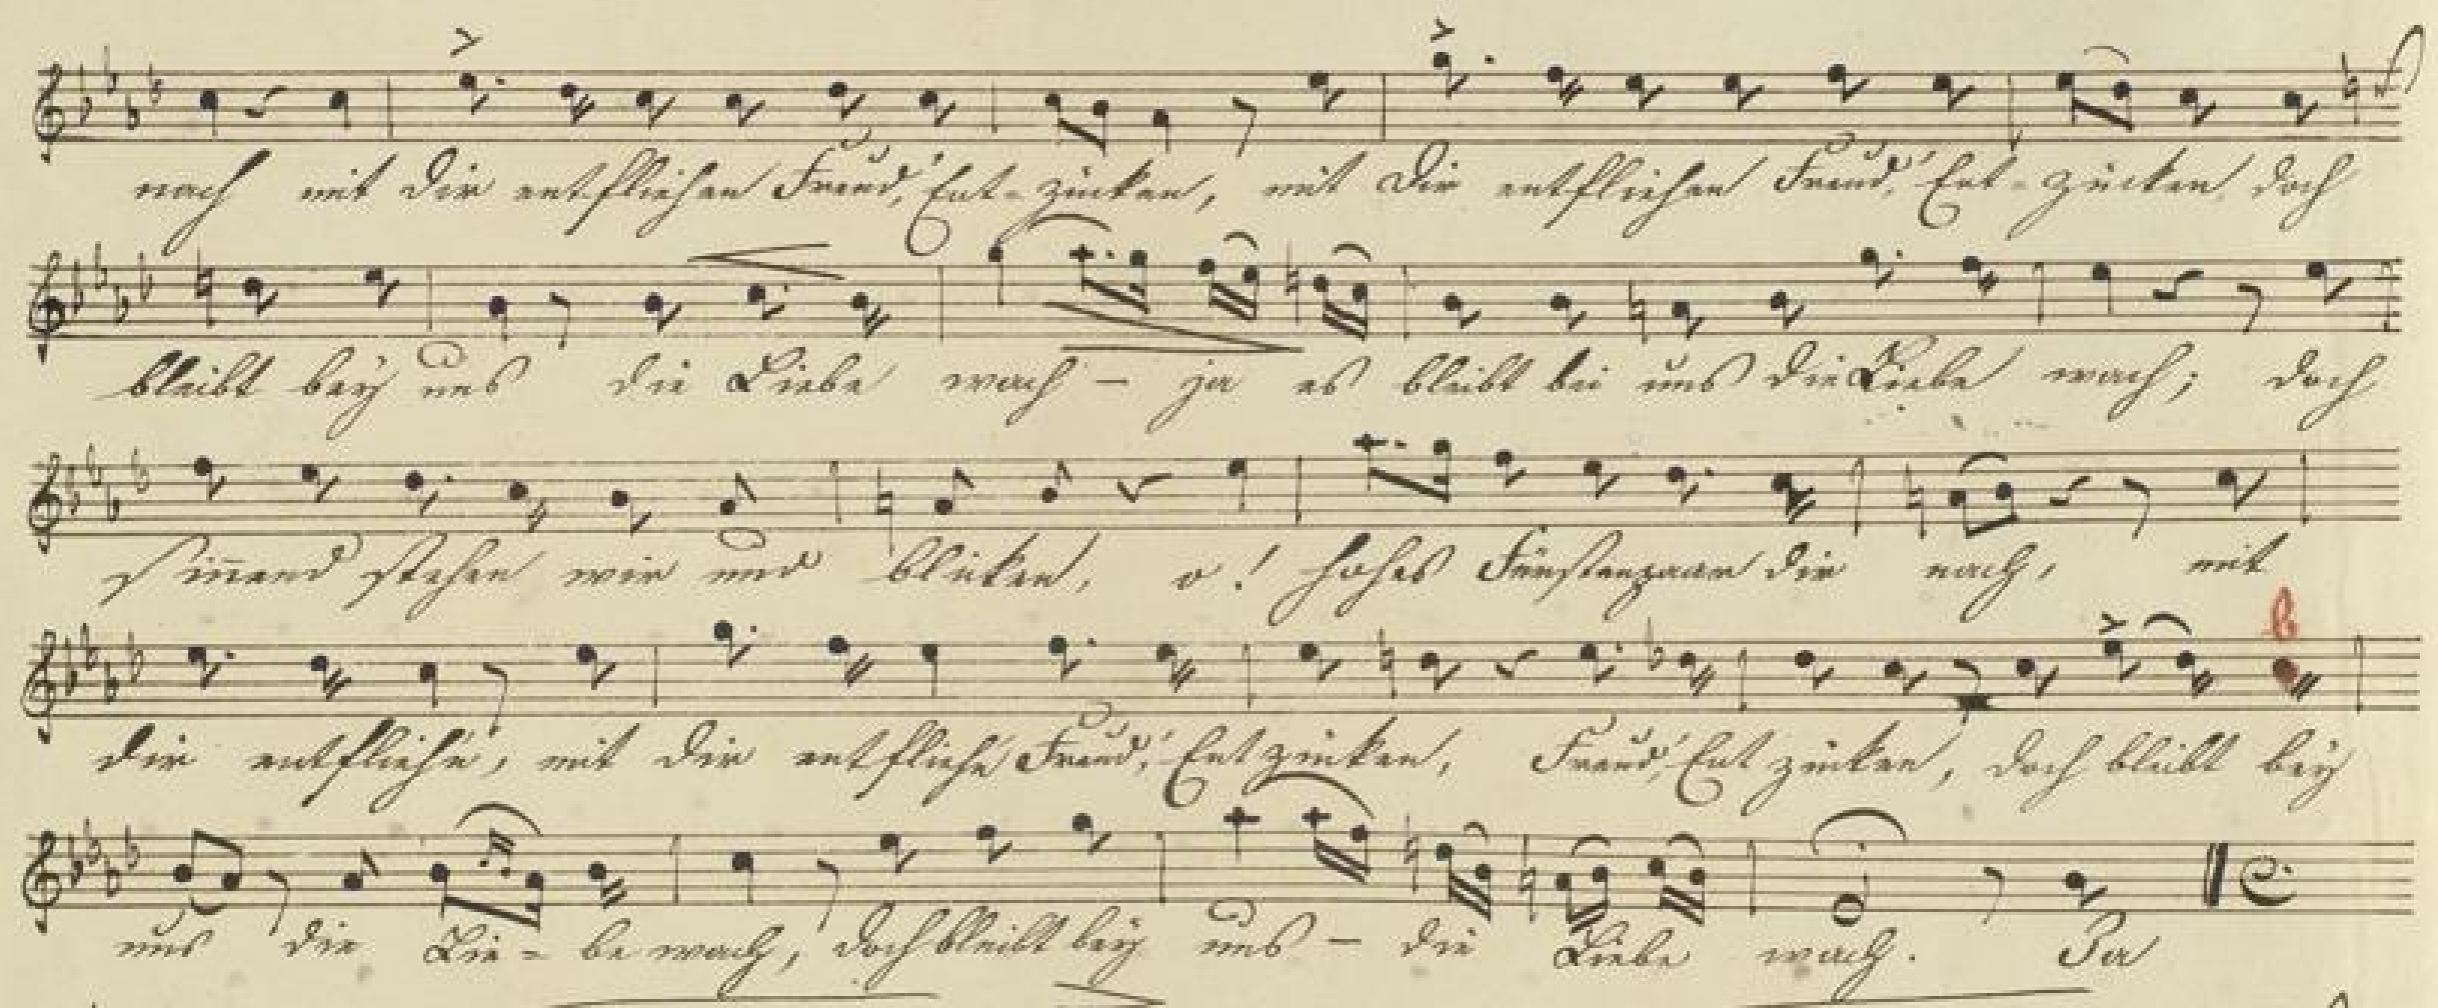 nach mit dir entfliehen Freud, Ent-zücken, mit dir entfliehen Freud, Ent-zücken doch
bleibt bey uns die Liebe wach – ja es bleibt bei uns die Liebe wach; doch
sin̄end stehen wir und blicken, o! hohes Fürstenpaar dir nach, mit
dir entflieh'n, mit dir entflieh'n Freud, Entzücken, Freud, Entzücken, doch bleibt bey
uns die Lie-be wach, doch bleibt bey uns – die Liebe wach. Ja